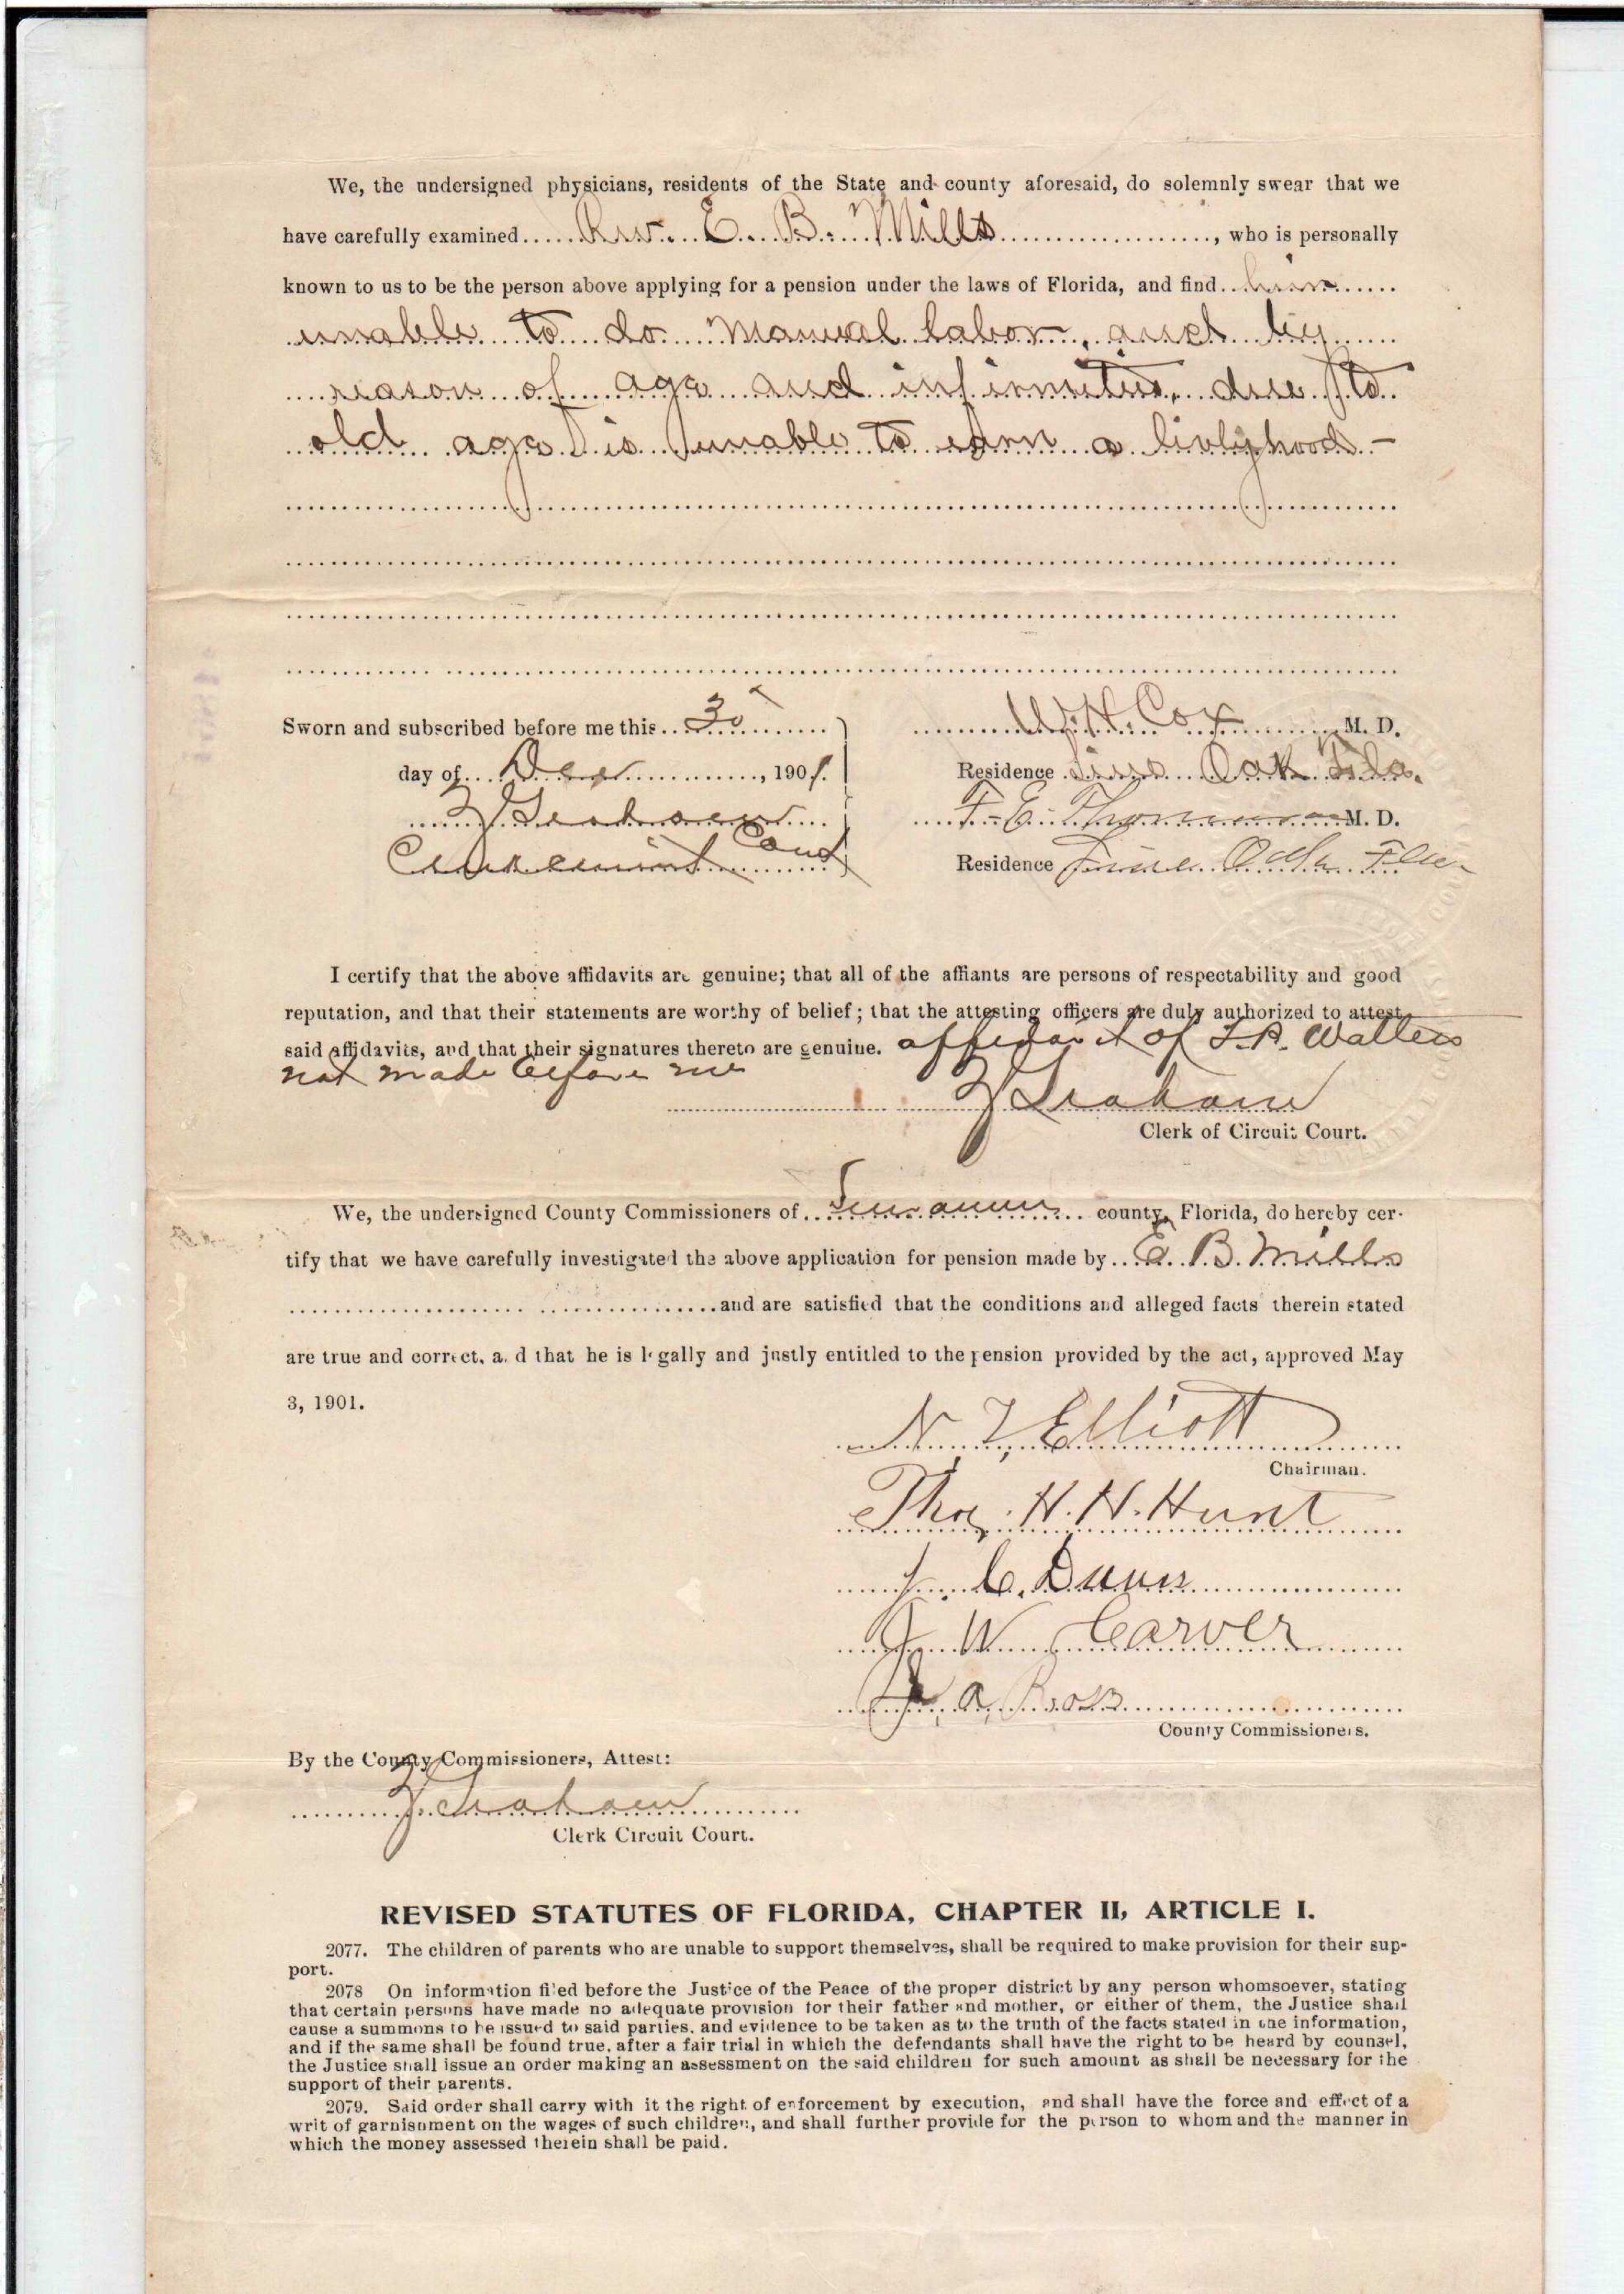 We, the undersigned physicians, residents of the State and county aforesaid, do solemnly swear that we
have carefully examined Rev. E. B. Mills, who is personally
known to us to be the person above applying for a pension under the laws of Florida, and find him
unable to do manual labor, and by
reason of age and infirmities, due to
old age is unable to earn a livlyhood -
Sworn and subscribed before me this 30
W. H. Cox M. D.
day of Dec, 1901.
Residence Live Oak Fla.
Graham
F. E. M. D.
Clerk Circuit Court
Residence Live Oak Fla
I certify that the above affidavits are genuine; that all of the affiants are persons of respectability and good
reputation, and that their statements are worthy of belief; that the attesting officers are duly authorized to attest
said affidavits, and that their signatures thereto are genuine. affidavit of Walters
not made before me
Graham
Clerk of Circuit Court.
We, the undersigned County Commissioners of Suwannee county, Florida, do hereby cer-
tify that we have carefully investigated the above application for pension made by E. B. Mills
and are satisfied that the conditions and alleged facts therein stated
are true and correct, and that he is legally and justly entitled to the pension provided by the act, approved May
3, 1901.
N. T. Elliott
Chairman.
Thos. H. N. Hunt
C.
J. W. Carver
J. A.
County Commissioners.
By the County Commissioners, Attest:
Graham
Clerk Circuit Court.
REVISED STATUTES OF FLORIDA, CHAPTER II, ARTICLE I.
2077. The children of parents who are unable to support themselves, shall be required to make provision for their sup-
port.
2078 On information filed before the Justice of the Peace of the proper district by any person whomsoever, stating
that certain persons have made no adequate provision for their father and mother, or either of them, the Justice shall
cause a summons to be issued to said parties, and evidence to be taken as to the truth of the facts stated in the information,
and if the same shall be found true, after a fair trial in which the defendants shall have the right to be heard by counsel,
the Justice shall issue an order making an assessment on the said children for such amount as shall be necessary for the
support of their parents.
2079. Said order shall carry with it the right of enforcement by execution, and shall have the force and effect of a
writ of garnishment on the wages of such children, and shall further provide for the person to whom and the manner in
which the money assessed therein shall be paid.